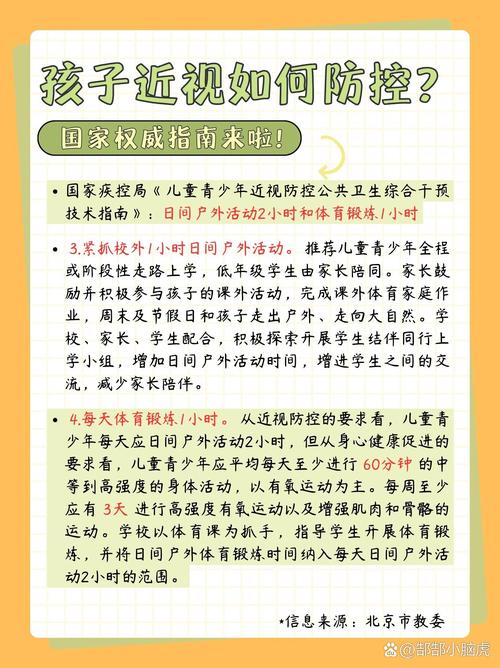 孩子近视如何防控?
国家权威指南来啦!
• 国家疾控局《儿童青少年近视防控公共卫生综合干预
技术指南》:日间户外活动2小时和体育锻炼1小时
• 3.紧抓校外1小时日间户外活动。推荐儿童青少年全程
或阶段性走路上学,低年级学生由家长陪同。家长鼓
励并积极参与孩子的课外活动,完成课外体育家庭作
业,周末及节假日和孩子走出户外、走向大自然。学
校、家长、学生配合,积极探索开展学生结伴同行上
学小组,增加日间户外活动时间,增进学生之间的交
流,减少家长陪伴。
• 4.每天体育锻炼1小时。从近视防控的要求看,儿童青
少年每天应日间户外活动2小时,但从身心健康促进的
要求看,儿童青少年应平均每天至少进行 60分钟 的中
等到高强度的身体活动,以有氧运动为主。每周至少
应有 3天 进行高强度有氧运动以及增强肌肉和骨骼的
运动。学校以体育课为抓手,指导学生开展体育锻
炼,并将日间户外体育锻炼时间纳入每天日间户外活
动2小时的范围。
*信息来源:北京市教委
郜郜小脑虎